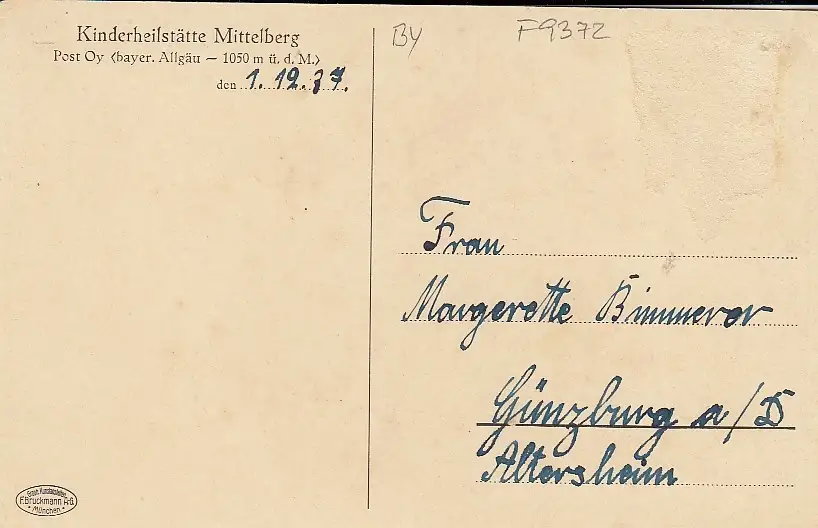 Kinderheilstätte Mittelberg
Post Oy (bayer. Allgäu — 1050 m ü. d. M.)
den 1. 12. 37.
BY
F9372
Frau
Margerette Bimmerer
Günzburg a/D
Altersheim
Graph. Kunstanstalten
F. Bruckmann A-G.
• München •